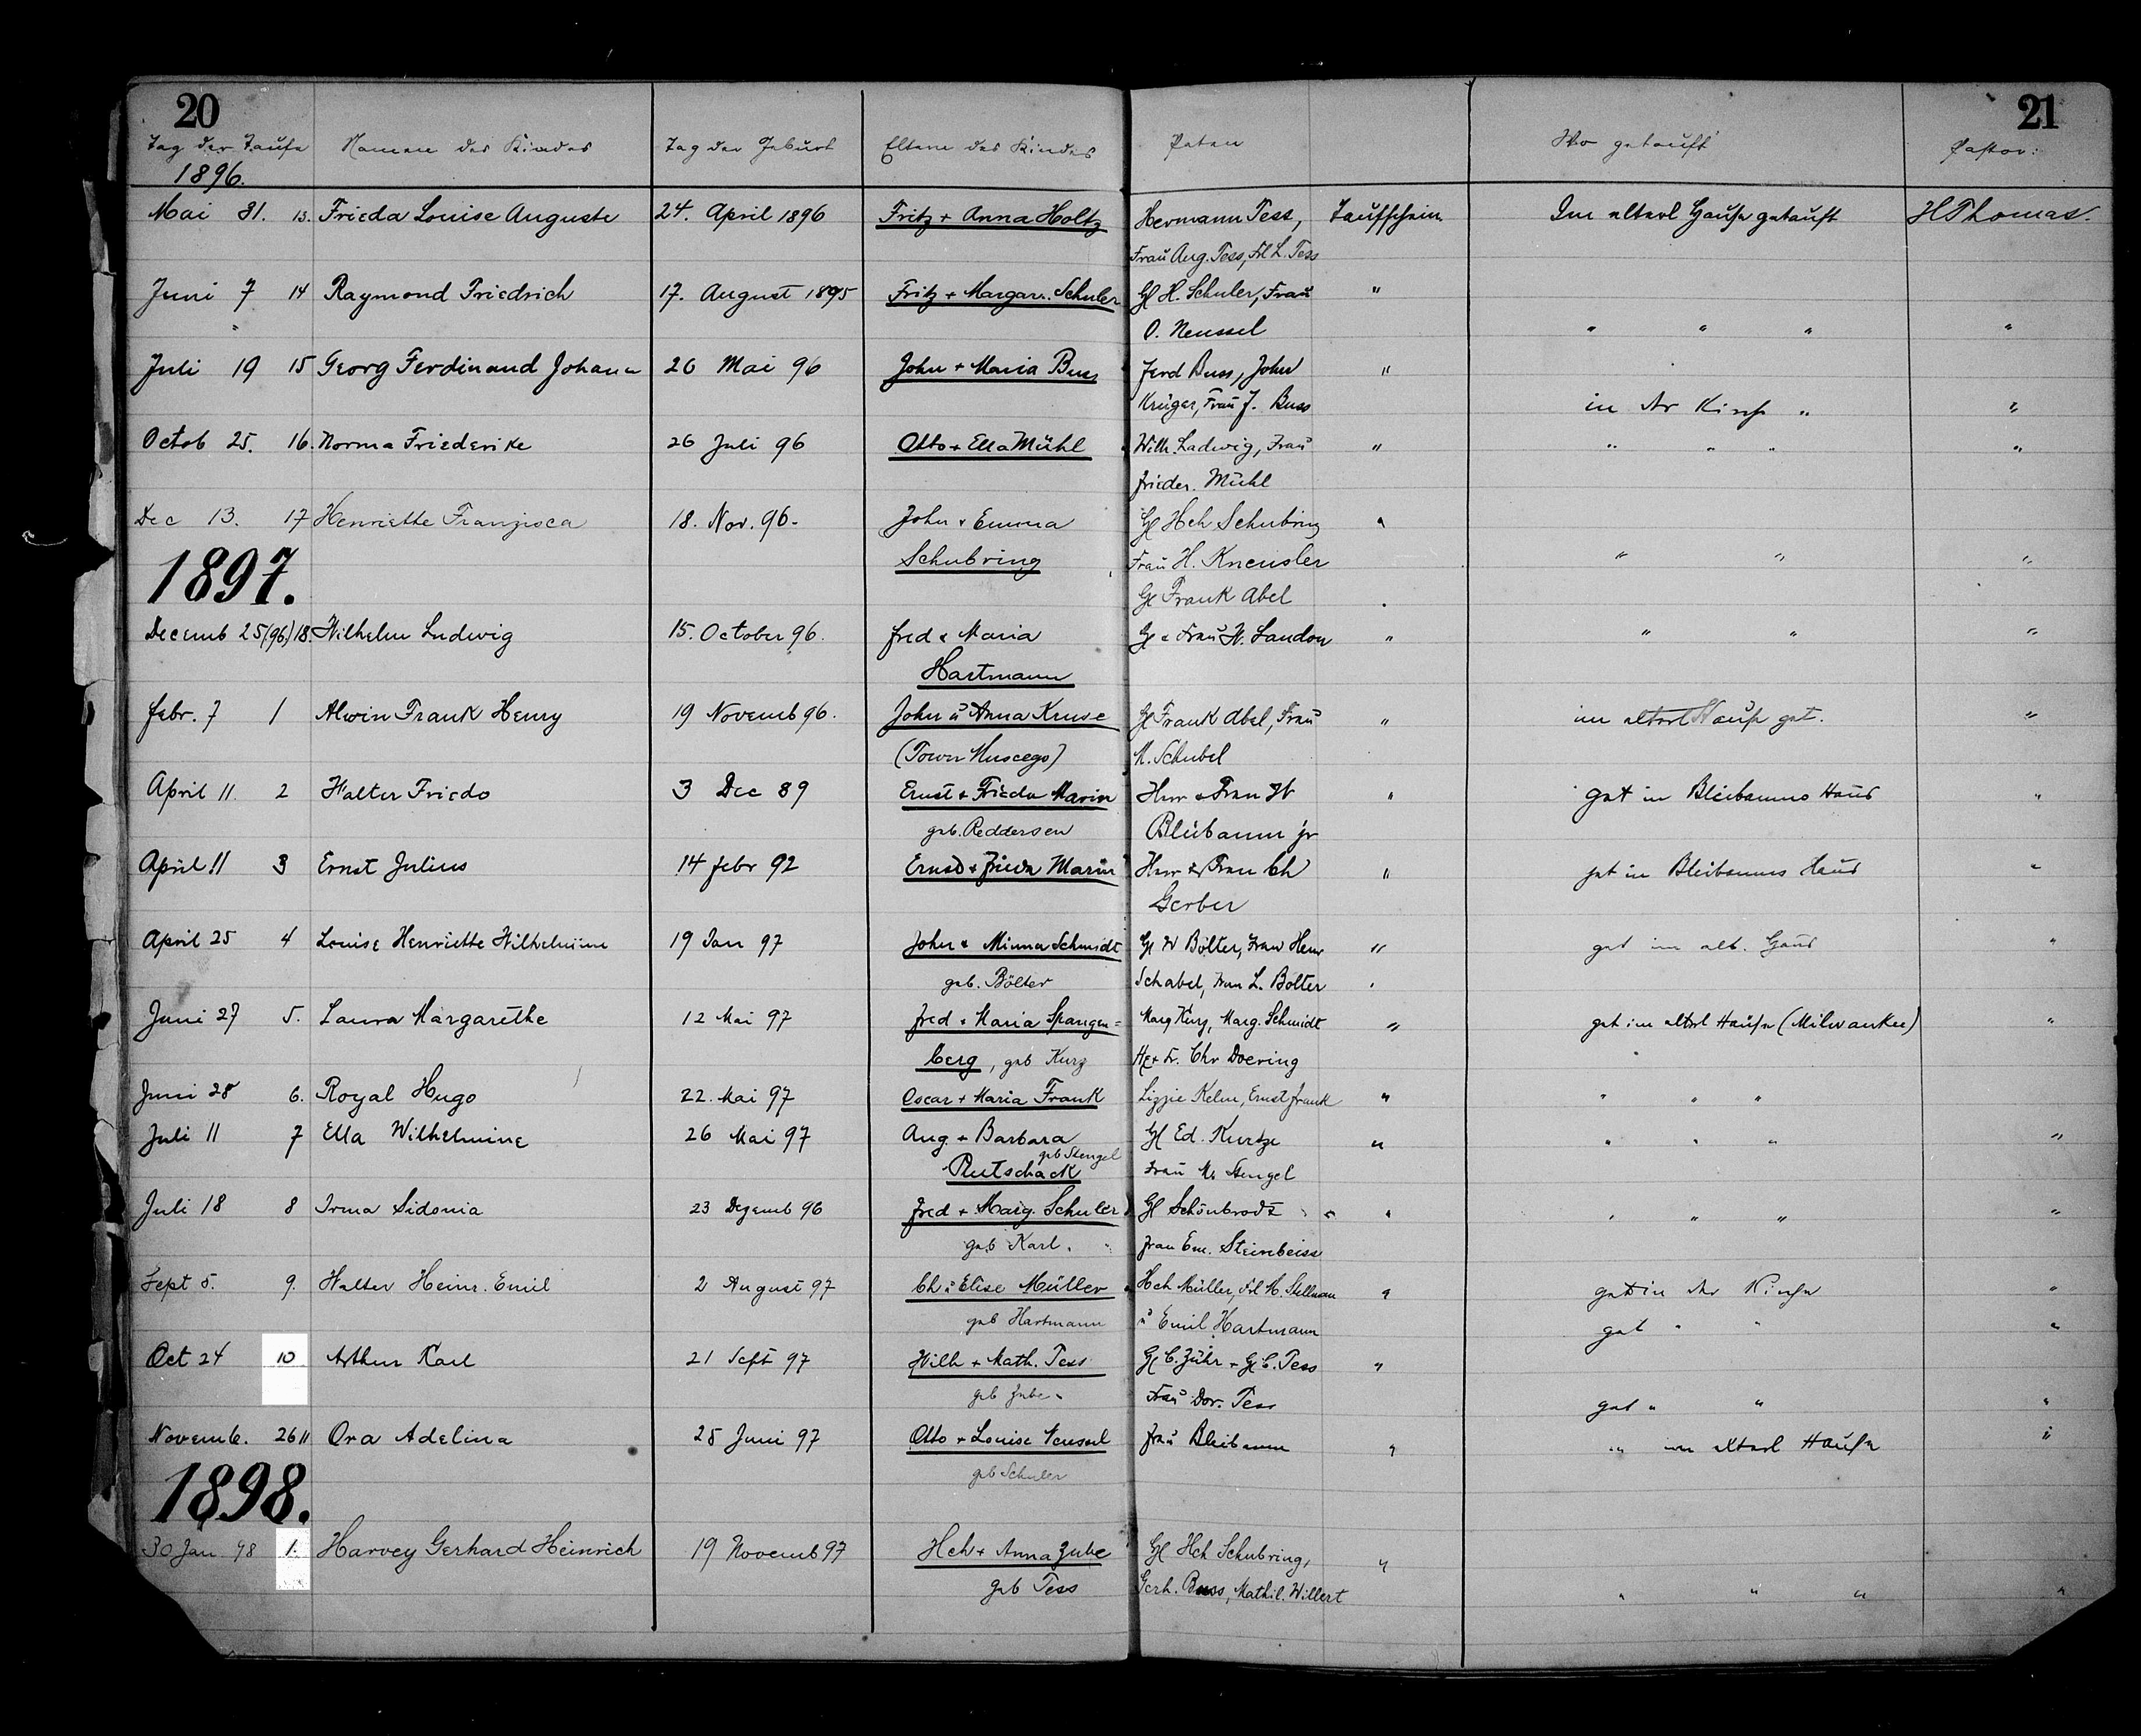 20 21
Tag der Taufe Namen des Kindes Tag der Geburt Eltern des Kindes Paten Wo getauft Pastor:
1896.
Mai 31. 13. Frieda Louise Auguste 24. April 1896 Fritz + Anna Holtz Hermann Tess, Taufschein Im elterl Hause getauft H Thomas.
Frau Aug. Tess, Frl L. Tess
Juni 7 14 Raymond Friedrich 17. August 1895 Fritz + Margar. Schuler H. Schuler, Frau "
" O. Neussel " " " "
Juli 19 15 Georg Ferdinand Johann 26 Mai 96 John + Maria Buss Ferd Buss, John "
Krüger, Frau J. Buss in der Kirche " "
Octob 25. 16. Norma Friederike 26 Juli 96 Otto + Ella Mühl Wilh. Ladwig, Frau " " " " "
Frieder. Mühl
Dec 13. 17 Henriette Franzisca 18. Nov. 96. John + Emma Hch Schubring "
1897. Schubring Frau H. Kneusler " " "
Frank Abel
Decemb 25 (96) 18. Wilhelm Ludwig 15. October 96. Fred + Maria + Frau W. Landon " " " "
Hartmann
Febr. 7 1 Alwin Frank Henry 19 Novemb 96. John u Anna Kruse Frank Abel, Frau " im elterl Hause get. "
(Town Muscego) M. Schubel
April 11. 2 Walter Friedo 3 Dec 89 Ernst + Frieda Marin Herr + Frau W " get in Bleibaums Haus "
geb. Reddersen Bleibaum jr
April 11 3 Ernst Julius 14 Febr 92 Ernst + Frieda Marin Herr + Frau Ch " get in Bleibaums Haus "
Gerber
April 25 4 Louise Henriette Wilhelmine 19 Jan 97 John + Minna Schmidt W Bölter, Frau Henr " get im elt. Haus "
geb. Bölter Schabel, Frau L. Bölter
Juni 27 5. Laura Margarethe 12 Mai 97 Fred + Maria Spangen= Marg Kurz, Marg. Schmidt " get im elterl Hause (Milwaukee) "
berg, geb Kurz H + Fr. Chr Doering
Juni 28 6. Royal Hugo 22. Mai 97 Oscar + Maria Frank Lizzie Kelm, Ernst Frank " " " "
Juli 11 7 Ella Wilhelmine 26 Mai 97 Aug. + Barbara Ed. Kurtze " " " " "
geb Stengel
Rutschack Frau M. Stengel
Juli 18 8 Irma Sidonia 23 Dezemb 96 Fred + Marg. Schuler Schönbrodt " " " " " "
geb Karl. Frau Em. Steinbeiss
Sept 5. 9. Walter Heinr. Emil 2 August 97 Ch u Elise Müller Hch Müller, Frl M. Stellman " get in der Kirche "
geb Hartmann u Emil Hartmann get " " "
Oct 24 10 Arthur Karl 21 Sept 97 Wilh + Math. Tess C. Zühr + C. Tess "
geb Zube. Frau Dor. Tess get " " "
Novemb. 26 11 Ora Adelina 25 Juni 97 Otto + Louise Neussel Frau Bleibaum " " im elterl Hause "
geb Schuler
1898.
30 Jan 98 1. Harvey Gerhard Heinrich 19 Novemb 97 Hch + Anna Zube Hch Schubring, "
geb Tess Gerh. Buss, Mathil. Willert " " " "